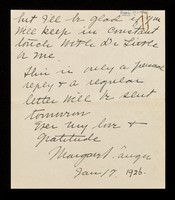 but I'll be glad if you
will keep in constant
touch with Dr Little
or me.
This is only a personal
reply & a regular
letter will be sent
tomorrow
Ever my love &
gratitude
Margaret Sanger
Jan 17 1926.